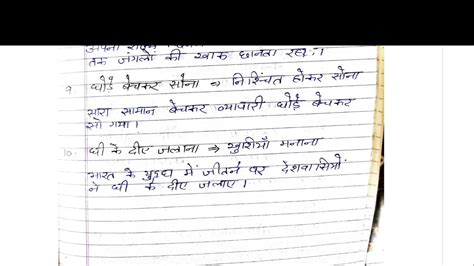 अपना राज्य
तक जंगलों की खाक छानता रहा।
9 घोड़े बेचकर सोना ⇒ निश्चिंत होकर सोना
सारा सामान बेचकर व्यापारी घोड़े बेचकर
सो गया।
10. घी के दीए जलाना ⇒ खुशियाँ मनाना
भारत के युद्ध में जीतने पर देशवासियों
ने घी के दीए जलाए।